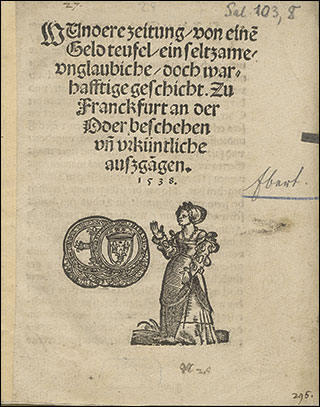 27.
Sal 103, 8
WUndere zeitung/ von einē
Geld teufel/ ein seltzame/
vnglaubiche/ doch war-
hafftige geschicht. Zu
Franckfurt an der
Oder beschehen
vñ vrküntliche
auszgāgen.
1538.
Ebert.
296.